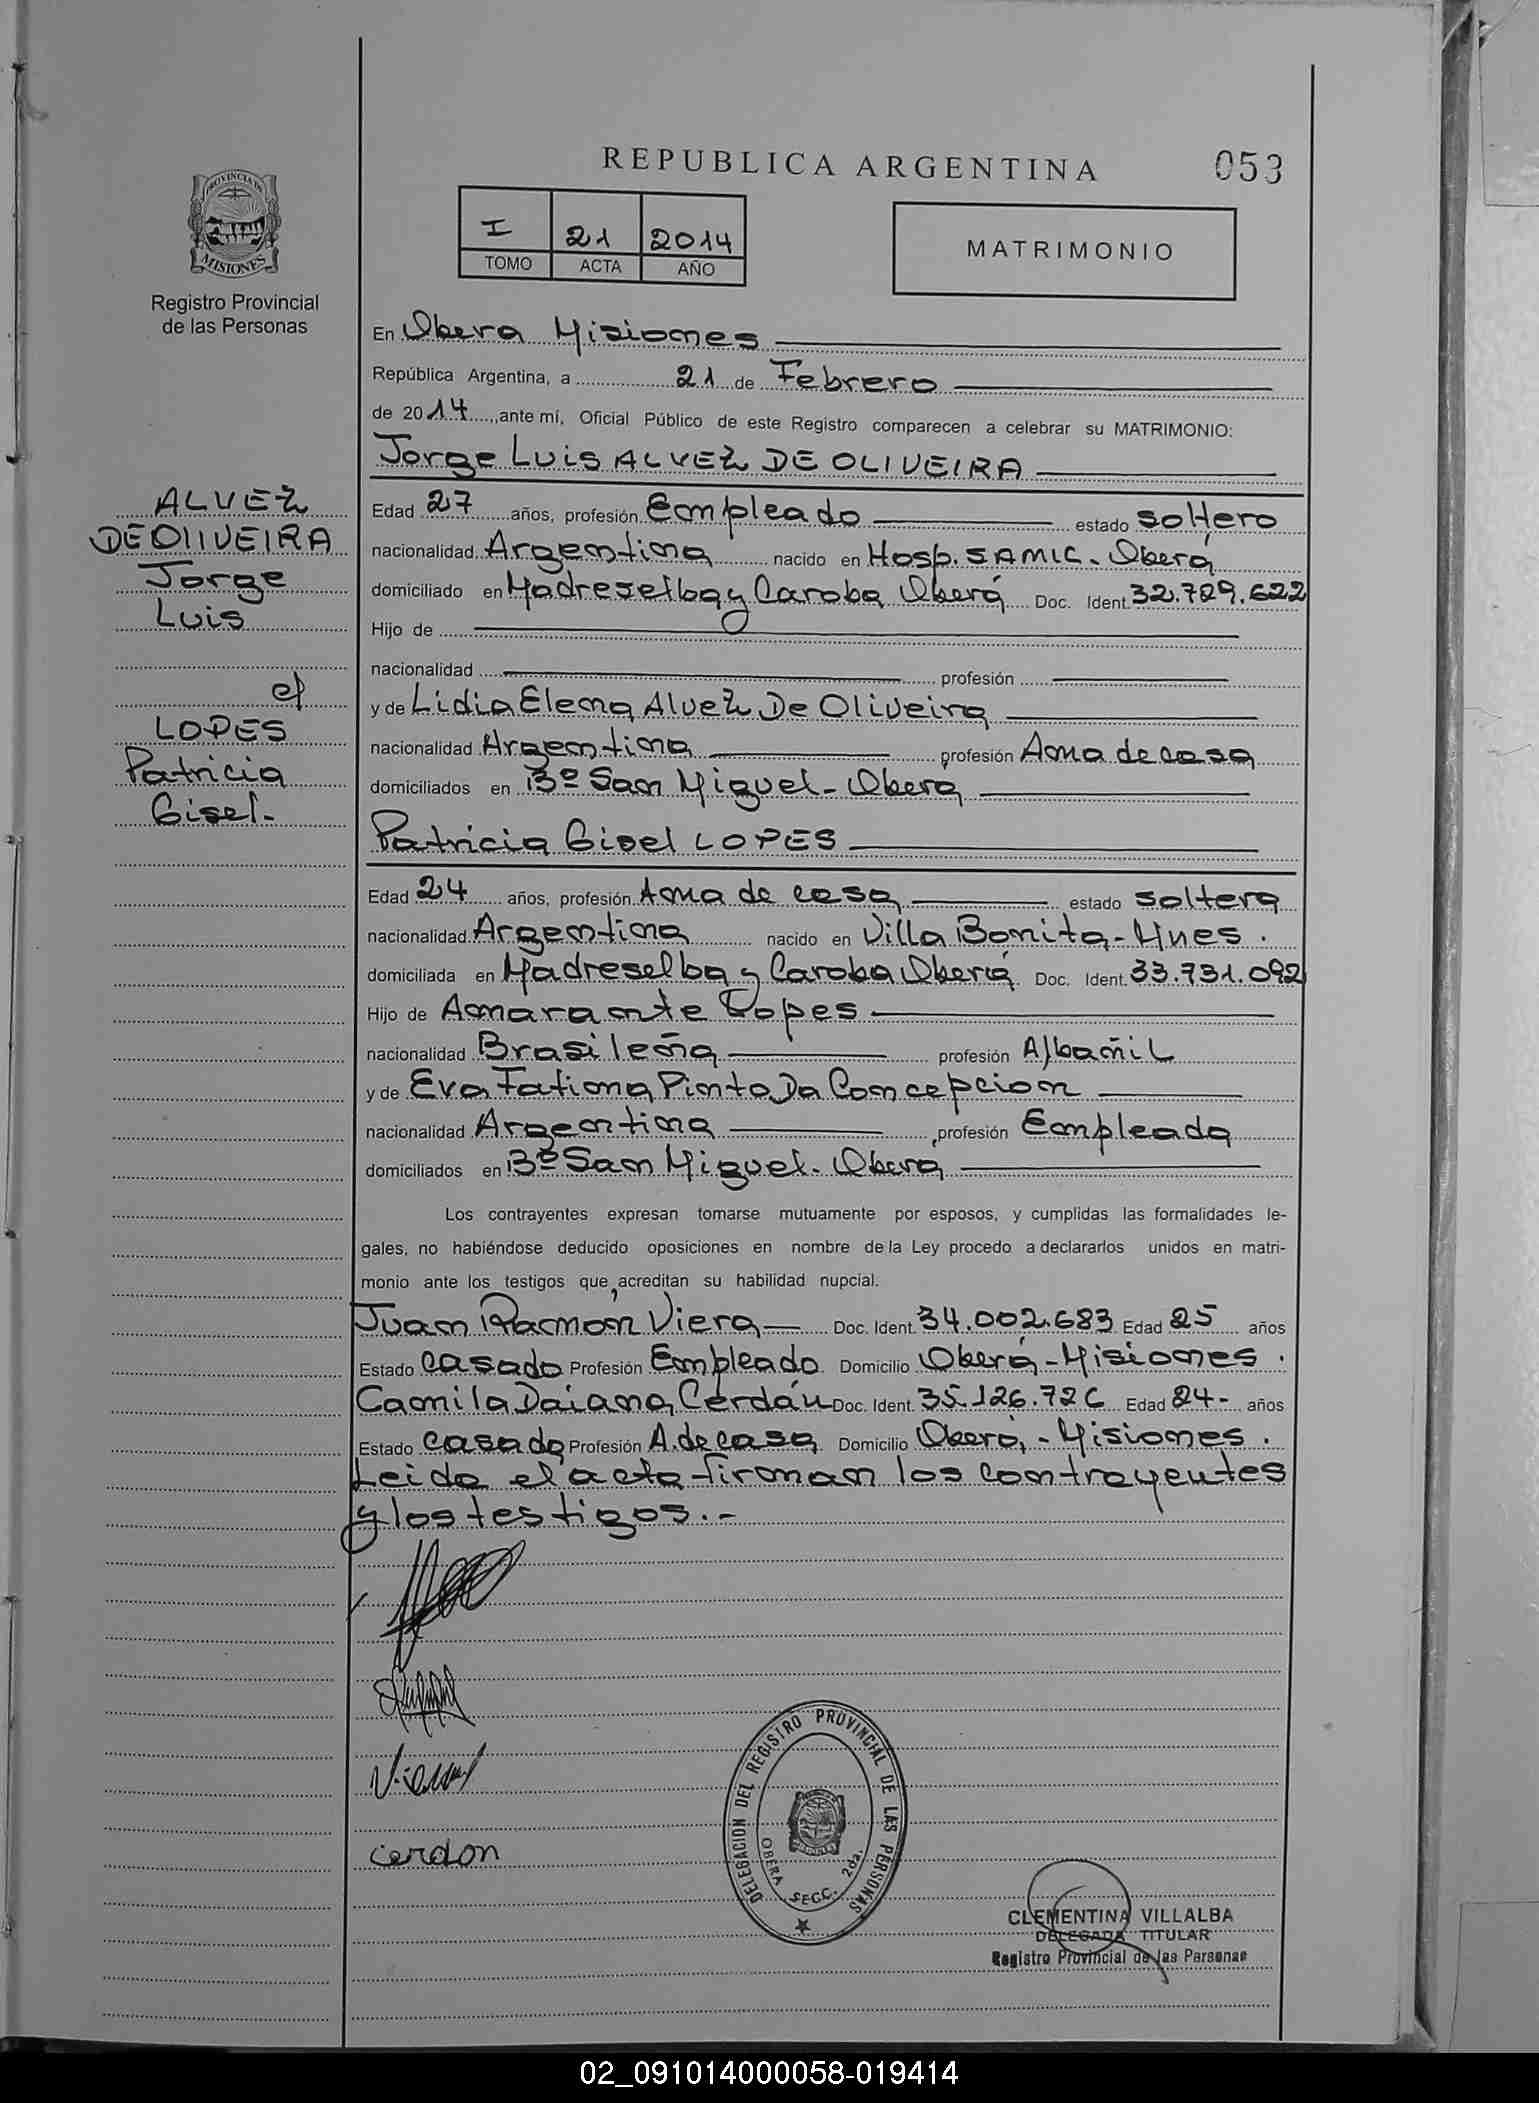 REPUBLICA ARGENTINA
053
PROVINCIA DE
MISIONES
Registro Provincial
de las Personas
I 21 2014
TOMO ACTA AÑO
MATRIMONIO
En Obera Misiones
República Argentina, a 21 de Febrero
de 2014, ante mí, Oficial Público de este Registro comparecen a celebrar su MATRIMONIO:
Jorge Luis ALVEZ DE OLIVEIRA
ALVEZ
DE OLIVEIRA
Jorge
Luis
c/
LOPES
Patricia
Gisel.-
Edad 27 años, profesión Empleado estado soltero
nacionalidad Argentina nacido en Hosp. SAMIC. Oberá
domiciliado en Madreselba y Caroba Oberá Doc. Ident. 32.729.622
Hijo de
nacionalidad profesión
y de Lidia Elena Alvez De Oliveira
nacionalidad Argentina profesión Ama de casa
domiciliados en Bº San Miguel - Obera
Patricia Gisel LOPES
Edad 24 años, profesión Ama de casa estado soltera
nacionalidad Argentina nacido en Villa Bonita - Mnes.
domiciliada en Madreselba y Caroba Oberá Doc. Ident. 33.731.092
Hijo de Amarante Lopes
nacionalidad Brasileña profesión Albañil
y de Eva Fatima Pinto Da Concepcion
nacionalidad Argentina profesión Empleada
domiciliados en Bº San Miguel - Obera
Los contrayentes expresan tomarse mutuamente por esposos, y cumplidas las formalidades le-
gales, no habiéndose deducido oposiciones en nombre de la Ley procedo a declararlos unidos en matri-
monio ante los testigos que acreditan su habilidad nupcial.
Juan Ramón Viera Doc. Ident. 34.002.683 Edad 25 años
Estado casado Profesión Empleado Domicilio Oberá - Misiones.
Camila Daiana Cerdán Doc. Ident. 35.126.726 Edad 24- años
Estado casada Profesión A. de casa Domicilio Oberá - Misiones.
Leida el acta firman los contrayentes
y los testigos.-
cerdan
DELEGACION DEL REGISTRO PROVINCIAL DE LAS PERSONAS
OBERA SECC. 2da.
CLEMENTINA VILLALBA
DELEGADA TITULAR
Registro Provincial de las Personas
02_091014000058-019414